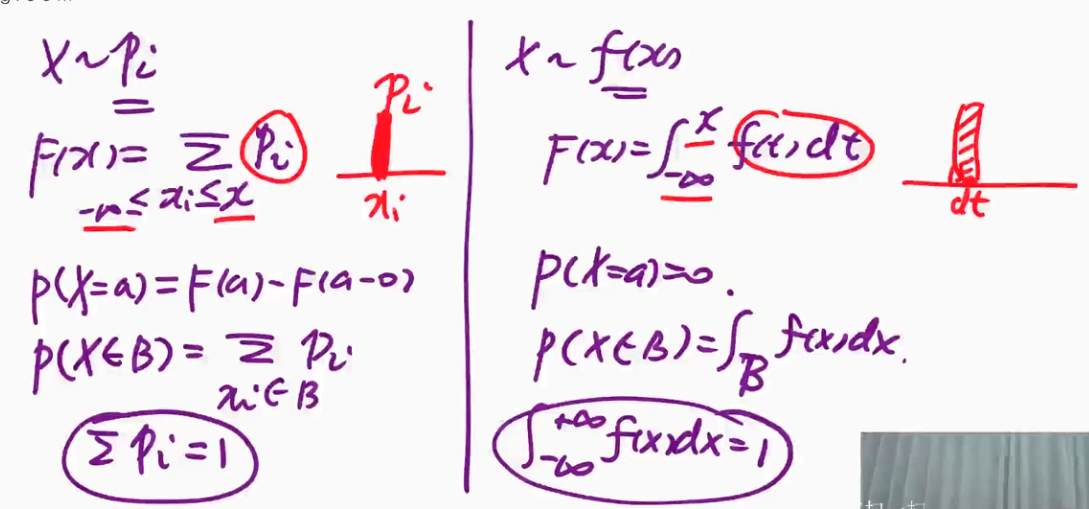 X ~ pᵢ
pᵢ
F(x) = Σ pᵢ
-∞ ≤ xᵢ ≤ x
xᵢ
P(X=a) = F(a) - F(a-0)
P(X∈B) = Σ pᵢ
xᵢ∈B
Σ pᵢ = 1
X ~ f(x)
F(x) = ∫_{-∞}^{x} f(t) dt
dt
P(X=a) = 0.
P(X∈B) = ∫_B f(x)dx.
∫_{-∞}^{+∞} f(x)dx = 1